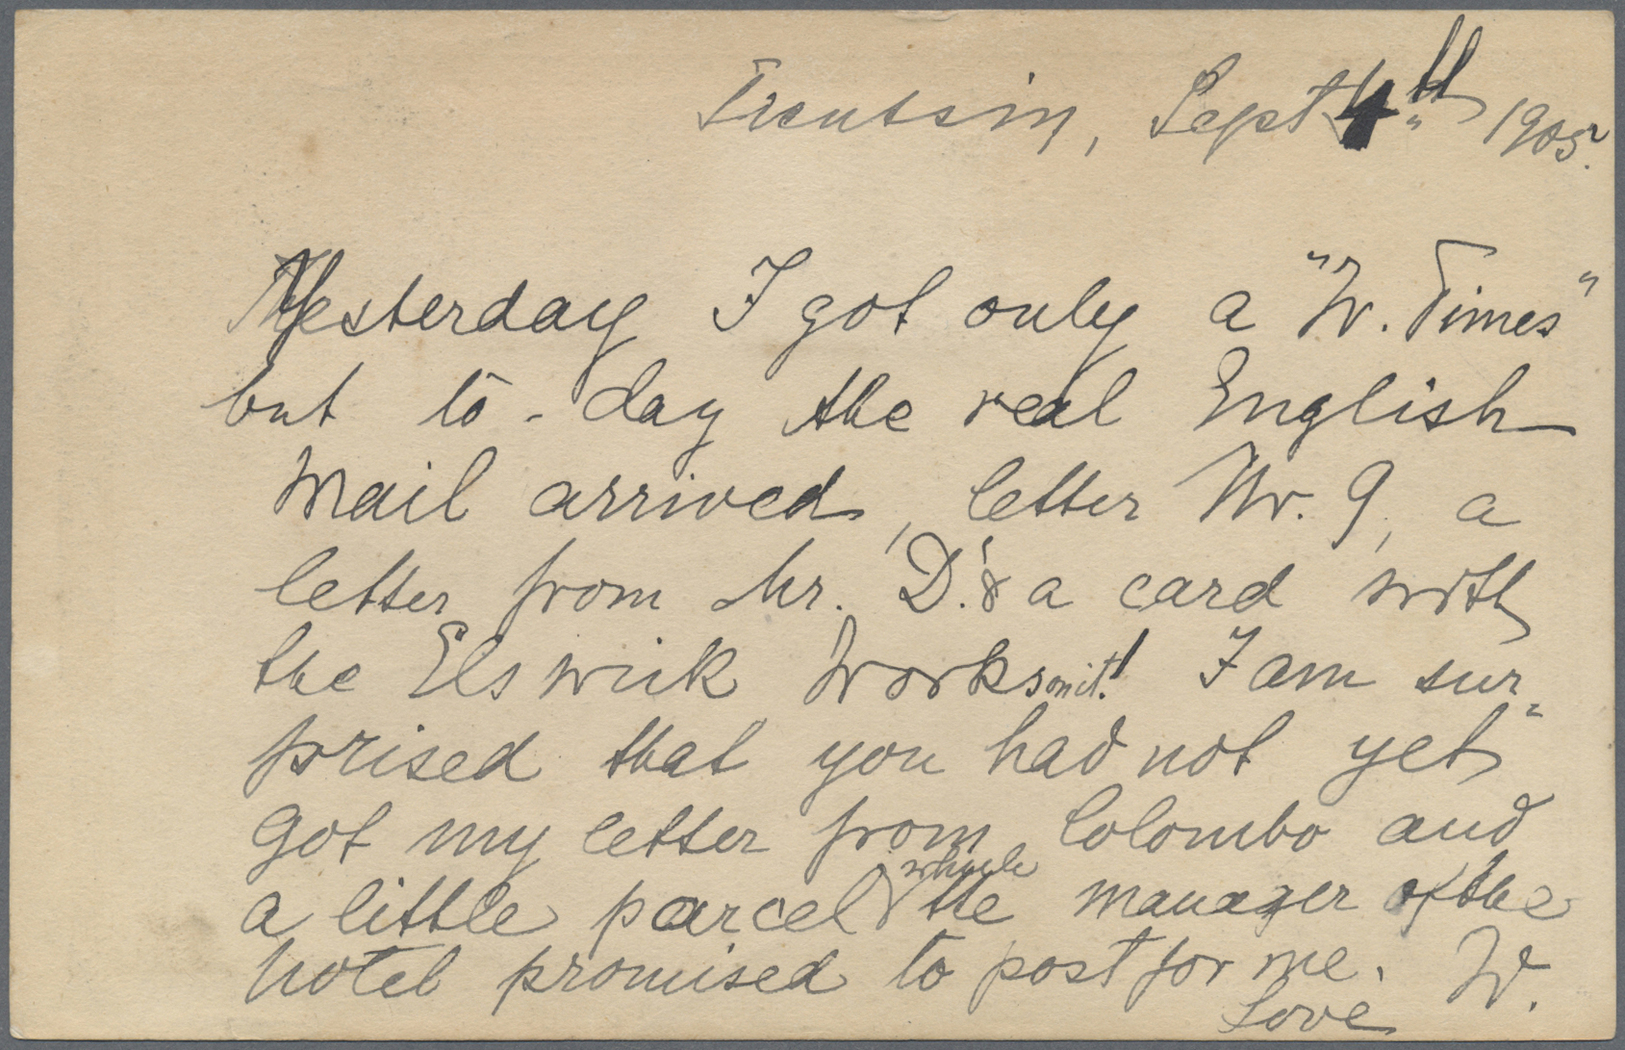 Tientsin, Sept 4th 1905.
Yesterday I got only a "W. Times"
but to-day the real English
Mail arrived, letter Nr. 9, a
letter from Mr. D. & a card with
the Elswick Works on it! I am sur-
prised that you had not yet
got my letter from Colombo and
a little parcel which the manager of the
hotel promised to post for me.
Love W.